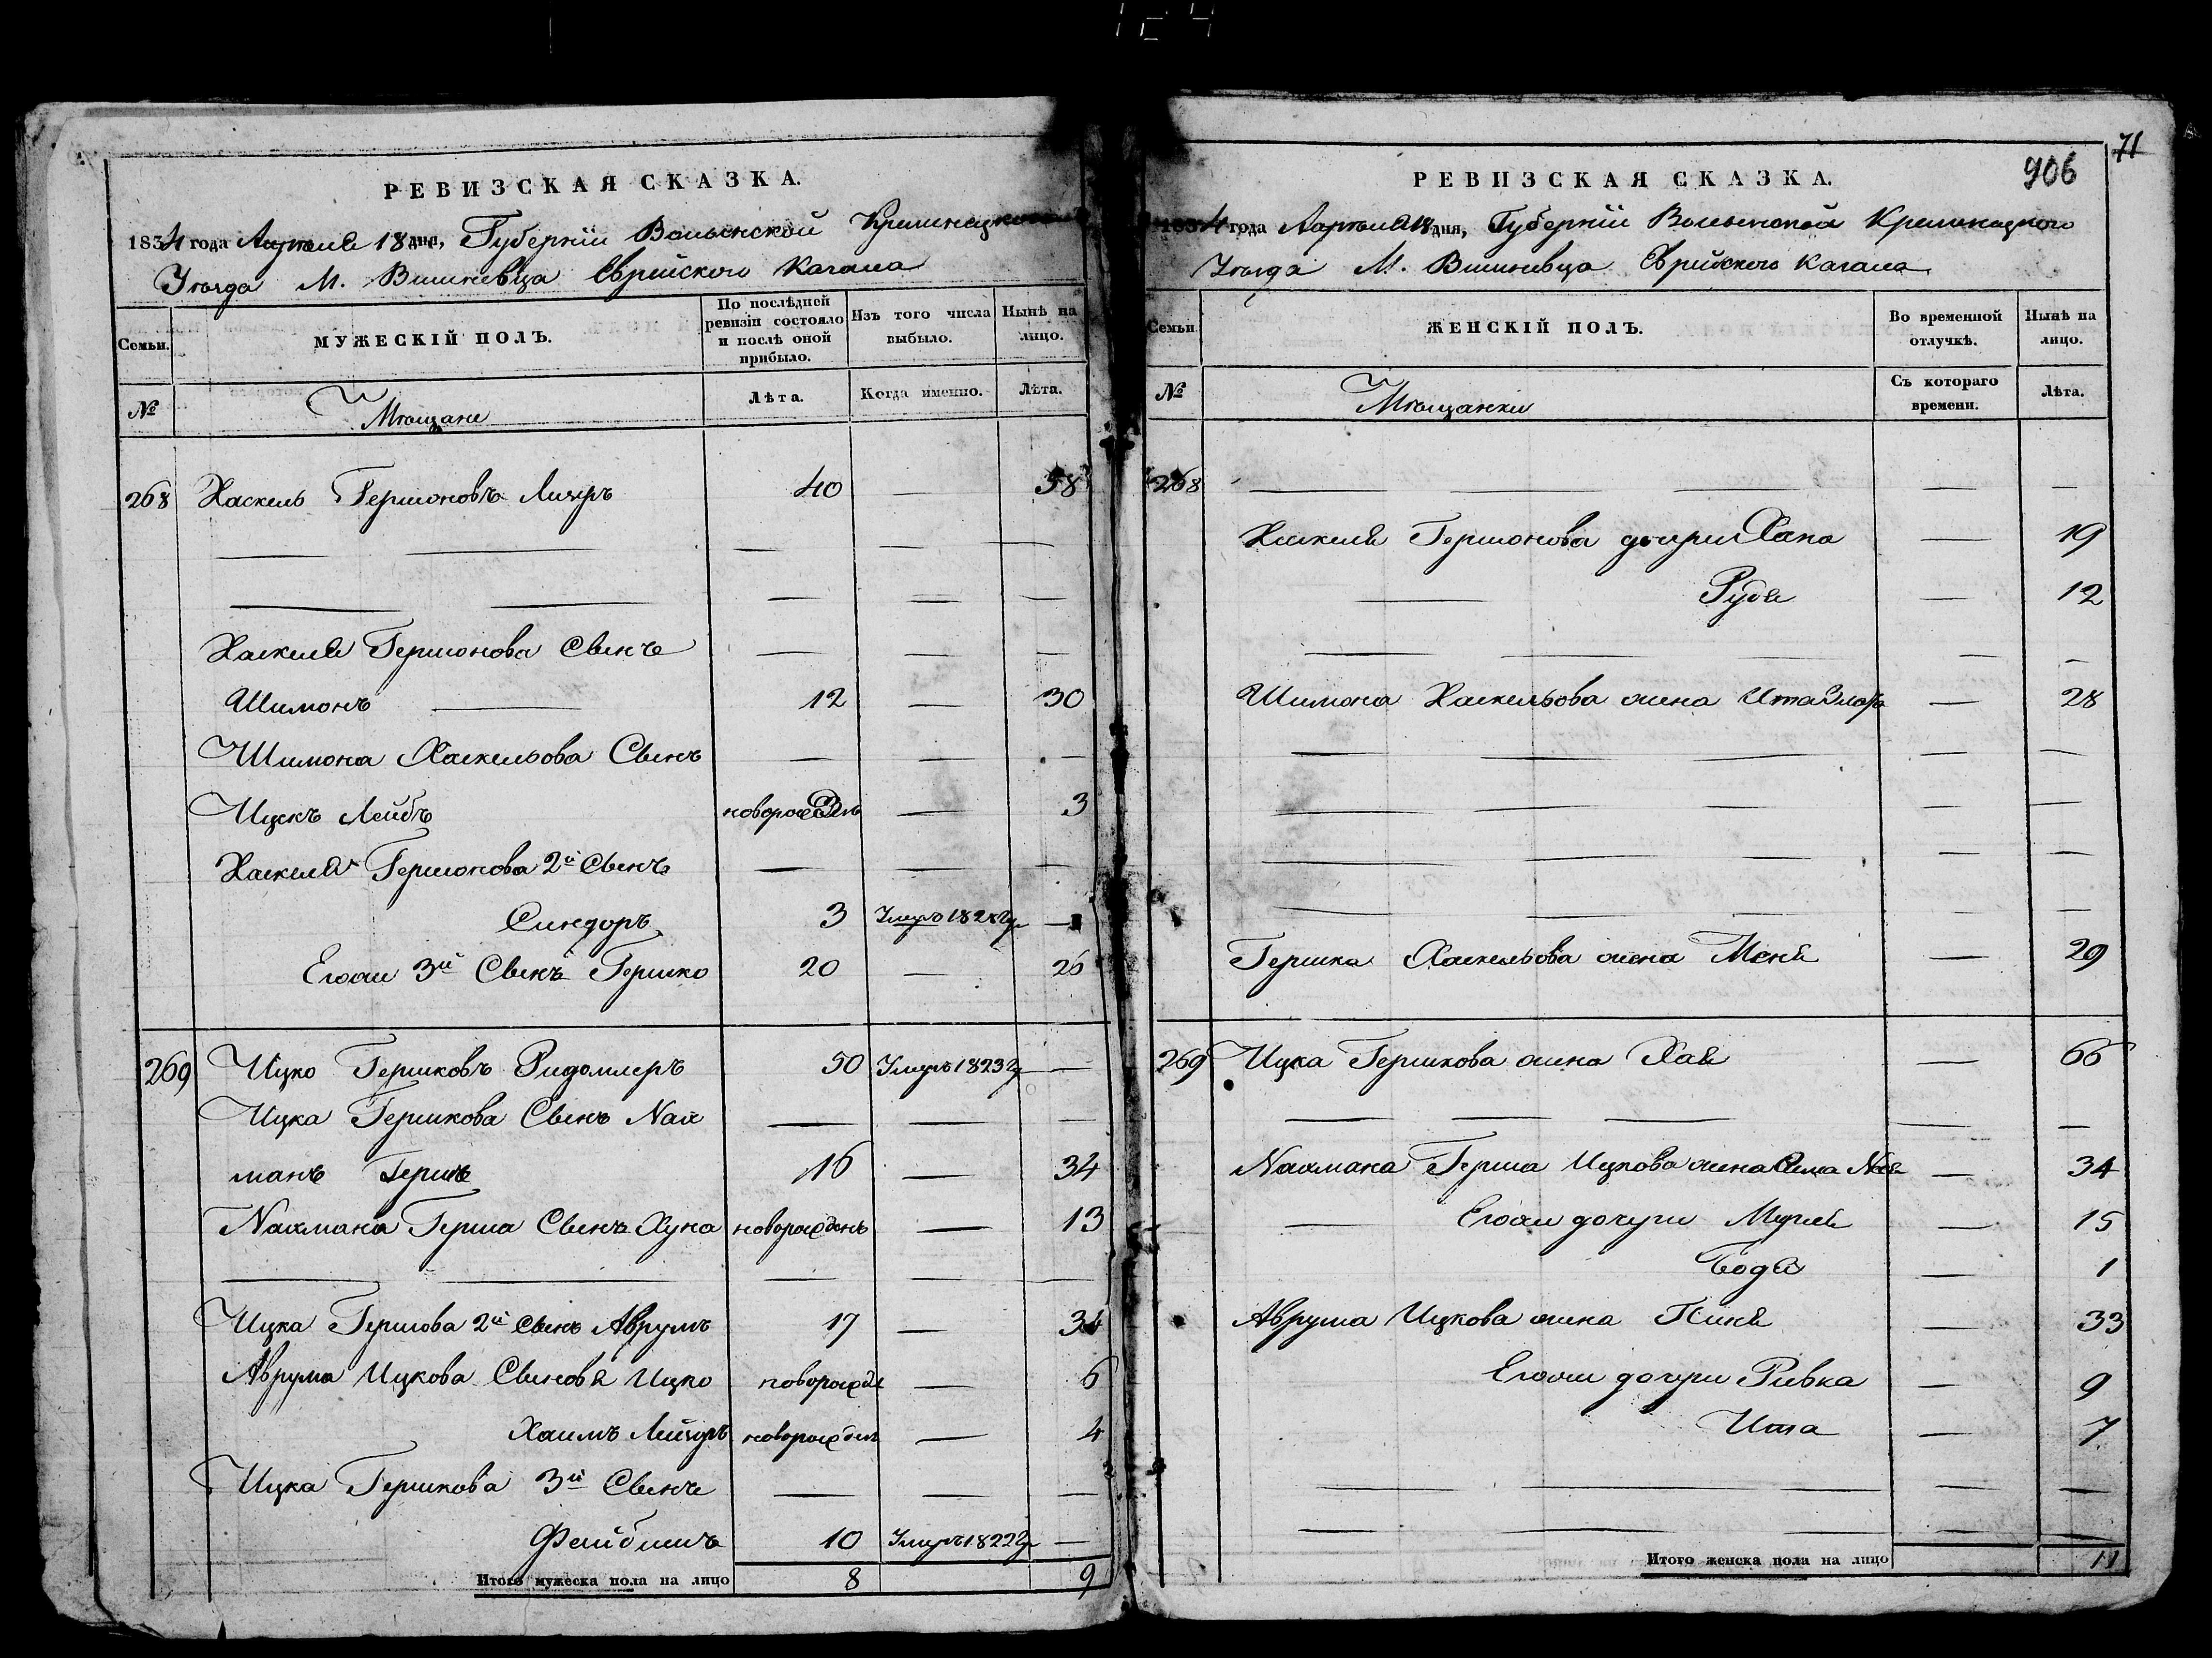 РЕВИЗСКАЯ СКАЗКА.
1834 года Апреля 18 дня, Губернiи Волынской Кременецкого
Уезда М. Вишневца Еврейского Кагала
Семьи.
МУЖЕСКIЙ ПОЛЪ.
По послѣдней ревизiи состояло и послѣ оной прибыло.
Изъ того числа выбыло.
Нынѣ на лицо.
№
Мещане
Лѣта.
Когда именно.
Лѣта.
268 Хаскель Гершоновъ Лицеръ 40 — 58
— — — — —
— — — — —
Хаскеля Гершонова Сынъ — — —
Шимонъ — 12 — 30
Шимона Хаскельова Сынъ — — —
Ицекъ Лейбъ новорожденъ — 3
Хаскеля Гершонова 2й Сынъ — — —
Синдоръ 3 Умеръ 1828 —
Егожъ 3й Сынъ Гершко 20 — 26
269 Ицко Гершковъ Ридомлеръ 50 Умеръ 1823 —
Ицка Гершкова Сынъ Nах — — —
манъ Гершъ 16 — 34
Nахмана Герша Сынъ Хуна новорожденъ — 13
— — — — —
Ицка Гершова 2й Сынъ Аврумъ 17 — 34
Аврума Ицкова Сыновя Ицко новорожде — 6
Хаимъ Лейзоръ новорожден — 4
Ицка Гершкова 3й Сынъ — — —
Файбишъ 10 Умеръ 1822 —
Итого мужеска пола на лицо 8 9
71
906
РЕВИЗСКАЯ СКАЗКА.
1834 года Апреля 18 дня, Губернiи Волынской Кременецкого
Уезда М. Вишневца Еврейского Кагала
Семьи.
ЖЕНСКIЙ ПОЛЪ.
Во временной отлучкѣ.
Нынѣ на лицо.
№
Мещанки
Съ котораго времени.
Лѣта.
268 — — — — —
Хаскеля Гершонова дочери Хана — 19
— Рубя — 12
— — — — —
Шимона Хаскельова жена Ита — 28
— — — — —
— — — — —
— — — — —
— — — — —
Гершка Хаскельова жена Меня — 29
269 Ицка Гершкова жена Хая — 66
— — — — —
Nахмана Герша Ицкова жена — 34
— Егожъ дочери — 15
Бодя — 1
Аврума Ицкова жена Песя — 33
Егожъ дочери Ривка — 9
Ита — 7
— — — — —
— — — — —
Итого женска пола на лицо 11